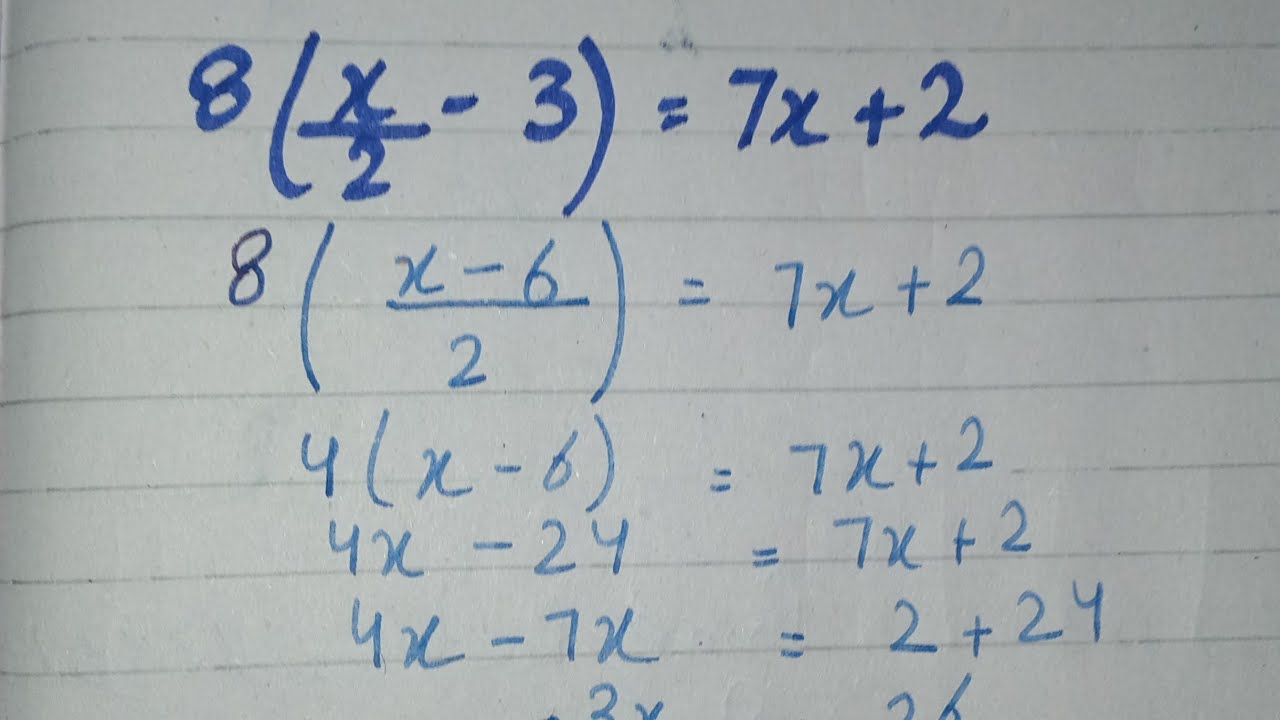 8(x/2 - 3) = 7x + 2
8(x - 6 / 2) = 7x + 2
4(x - 6) = 7x + 2
4x - 24 = 7x + 2
4x - 7x = 2 + 24
-3x 26